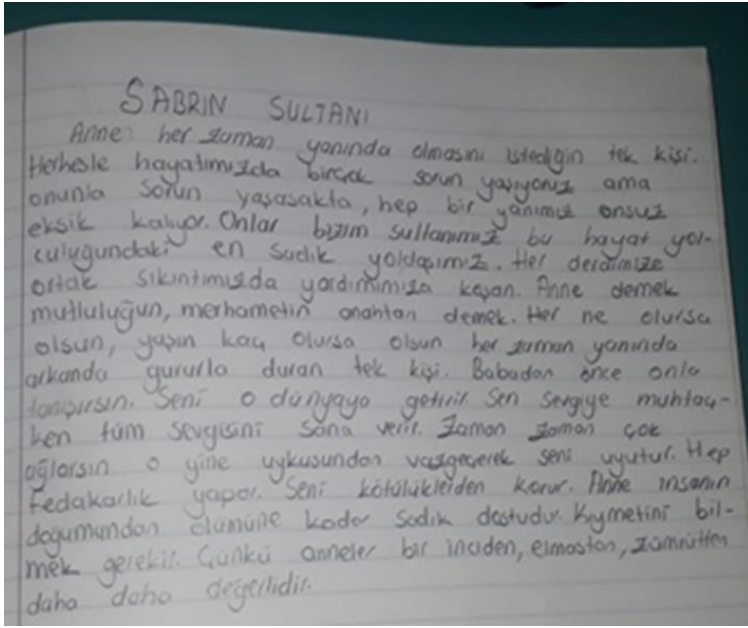 SABRIN SULTANI
Anne her zaman yanında olmasını istediğin tek kişi.
Herkesle hayatımızda birçok sorun yaşıyoruz ama
onunla sorun yaşasakta, hep bir yanımız onsuz
eksik kalıyor. Onlar bizim sultanımız bu hayat yol-
culuğundaki en sadık yoldaşımız. Her derdimize
ortak sıkıntımızda yardımımıza koşan. Anne demek
mutluluğun, merhametin anahtarı demek. Her ne olursa
olsun, yaşın kaç olursa olsun her zaman yanında
arkanda gururla duran tek kişi. Babadan önce onla
tanışırsın. Seni o dünyaya getirir. Sen sevgiye muhtaç-
ken tüm sevgisini sana verir. Zaman zaman çok
ağlarsın o yine uykusundan vazgeçerek seni uyutur. Hep
fedakarlık yapar. Seni kötülüklerden korur. Anne insanın
doğumundan ölümüne kadar sadık dostudur. Kıymetini bil-
mek gerekir. Çünkü anneler bir inciden, elmastan, zümrütten
daha daha değerlidir.